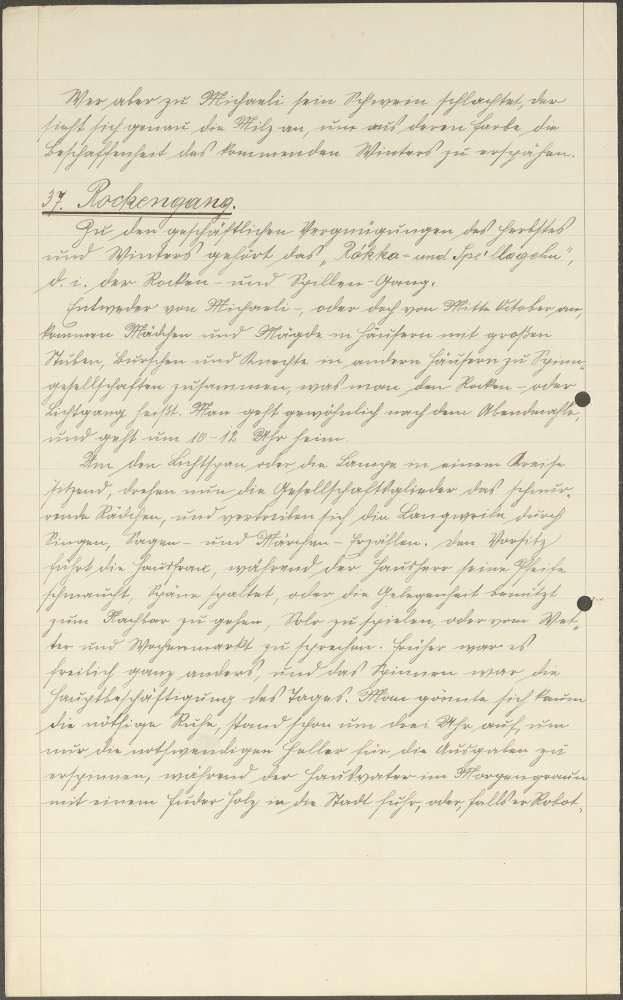 Wer aber zu Michaeli sein Schwein schlachtet, der
sieht sich genau die Milz an, um aus deren Farbe die
Beschaffenheit des kommenden Winters zu erspähen.
37. Rockengang.
Zu den geschäftlichen Vergnügungen des Herbstes
und Winters gehört das „Rokka- und Spe'llagehn",
d. i. der Rocken- und Spillen-Gang.
Entweder von Michaeli-, oder doch von Mitte October an,
kommen Mädchen und Mägde in Häusern mit großen
Stuben, Burschen und Knechte in andern Häusern zu Spinn-
gesellschaften zusammen, was man den Rocken- oder
Lichtgang heißt. Man geht gewöhnlich nach dem Abendmahle,
und geht um 10-12 Uhr heim.
Um den Lichtspan oder die Lampe in einem Kreise
sitzend, drehen nun die Gesellschaftsglieder das schnur-
rende Rädchen, und vertreiben sich die Langweile durch
Singen, Sagen- und Märchen-Erzählen. Den Vorsitz
führt die Hausfrau, während der Hausherr seine Pfeife
schmaucht, Späne spaltet, oder die Gelegenheit benützt
zum Nachbar zu gehen, Solo zu spielen, oder vom Wet-
ter und Wochenmarkt zu sprechen. Früher war es
freilich ganz anders, und das Spinnen war die
Hauptbeschäftigung des Tages. Man gönnte sich kaum
die nöthige Ruhe, stand schon um drei Uhr auf, um
nur die nothwendigen Heller für die Ausgaben zu
erspinnen, während der Hausvater im Morgengrauen
mit einem Fuder Holz in die Stadt fuhr, oder, falls er Robot-